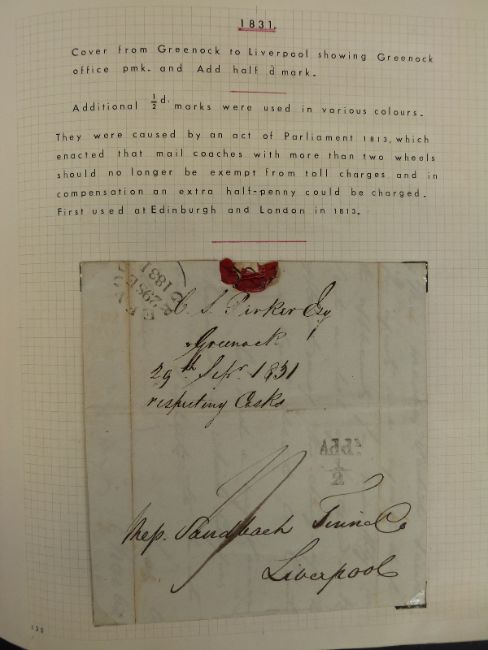 1831.
Cover from Greenock to Liverpool showing Greenock
office pmk. and Add half d mark.
Additional ½d. marks were used in various colours.
They were caused by an act of Parliament 1813, which
enacted that mail coaches with more than two wheels
should no longer be exempt from toll charges and in
compensation an extra half-penny could be charged.
First used at Edinburgh and London in 1813.
29 SE
1831
C. S. Parker Esq
Greenock
29th Sepr. 1831
respecting Casks
½
Mess. Sandbach Tinne & Co
Liverpool